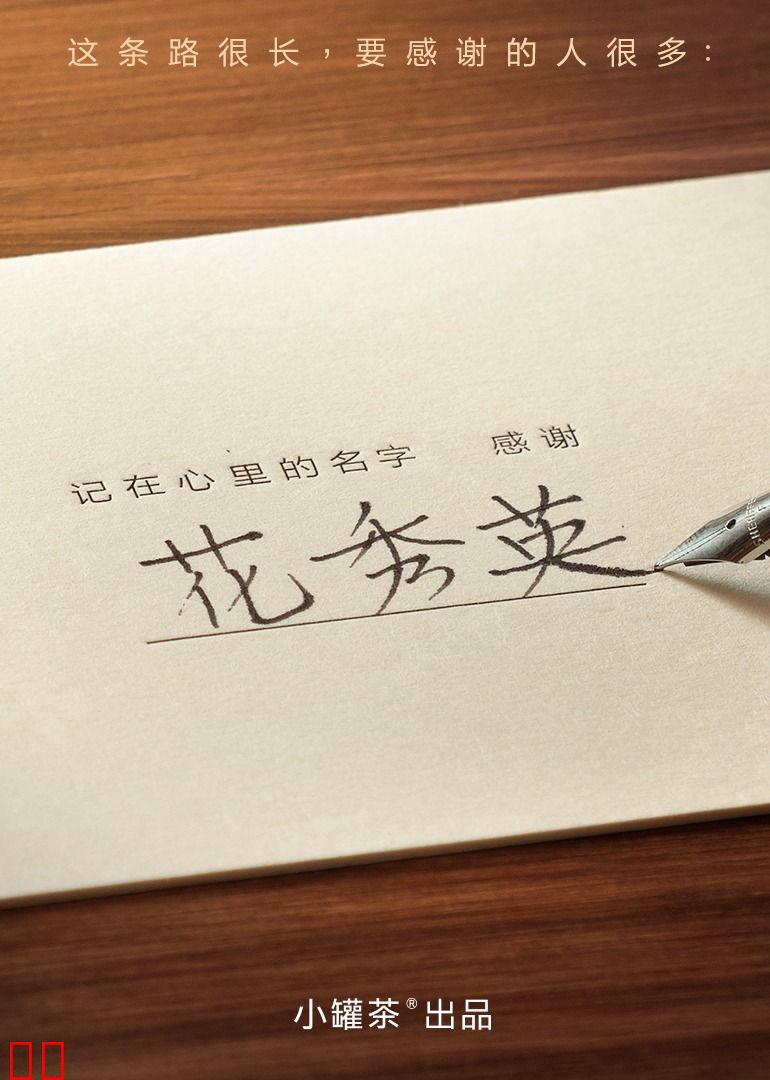 这条路很长，要感谢的人很多：
记在心里的名字 感谢
花秀英
小罐茶®出品